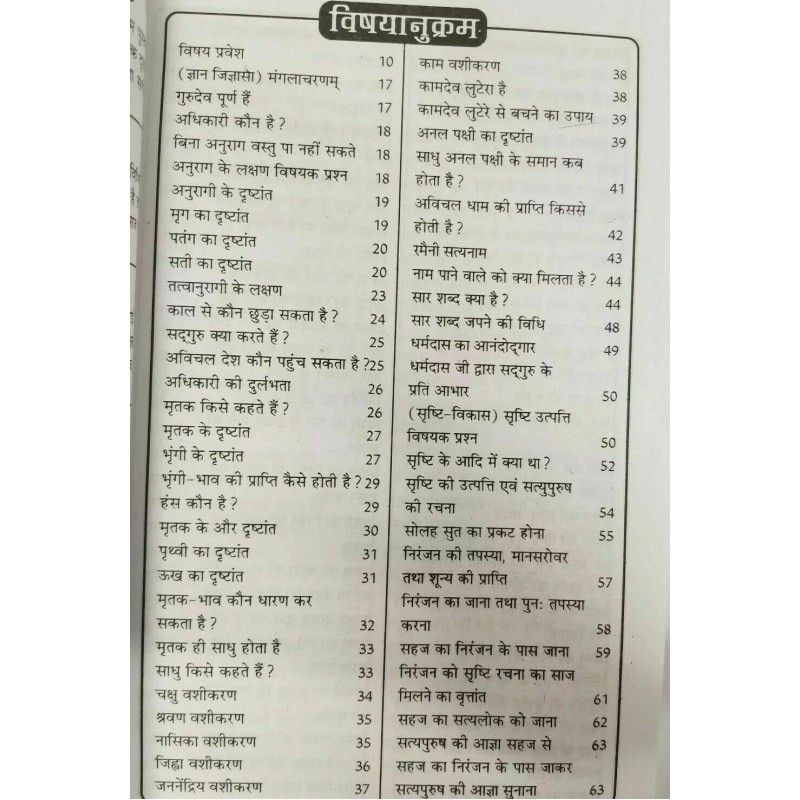 विषयानुक्रम
विषय प्रवेश 10
(ज्ञान जिज्ञासा) मंगलाचरणम् 17
गुरुदेव पूर्ण हैं 17
अधिकारी कौन है? 18
बिना अनुराग वस्तु पा नहीं सकते 18
अनुराग के लक्षण विषयक प्रश्न 18
अनुरागी के दृष्टांत 19
मृग का दृष्टांत 19
पतंग का दृष्टांत 20
सती का दृष्टांत 20
तत्वानुरागी के लक्षण 23
काल से कौन छुड़ा सकता है? 24
सद्गुरु क्या करते हैं? 25
अविचल देश कौन पहुंच सकता है?25
अधिकारी की दुर्लभता 26
मृतक किसे कहते हैं? 26
मृतक के दृष्टांत 27
भृंगी के दृष्टांत 27
भृंगी-भाव की प्राप्ति कैसे होती है? 29
हंस कौन है? 29
मृतक के और दृष्टांत 30
पृथ्वी का दृष्टांत 31
ऊख का दृष्टांत 31
मृतक-भाव कौन धारण कर
सकता है? 32
मृतक ही साधु होता है 33
साधु किसे कहते हैं? 33
चक्षु वशीकरण 34
श्रवण वशीकरण 35
नासिका वशीकरण 35
जिह्वा वशीकरण 36
जननेंद्रिय वशीकरण 37
काम वशीकरण 38
कामदेव लुटेरा है 38
कामदेव लुटेरे से बचने का उपाय 39
अनल पक्षी का दृष्टांत 39
साधु अनल पक्षी के समान कब
होता है? 41
अविचल धाम की प्राप्ति किससे
होती है? 42
रमैनी सत्यनाम 43
नाम पाने वाले को क्या मिलता है? 44
सार शब्द क्या है? 44
सार शब्द जपने की विधि 48
धर्मदास का आनंदोद्गार 49
धर्मदास जी द्वारा सद्गुरु के
प्रति आभार 50
(सृष्टि-विकास) सृष्टि उत्पत्ति
विषयक प्रश्न 50
सृष्टि के आदि में क्या था? 52
सृष्टि की उत्पत्ति एवं सत्युपुरुष
की रचना 54
सोलह सुत का प्रकट होना 55
निरंजन की तपस्या, मानसरोवर
तथा शून्य की प्राप्ति 57
निरंजन का जाना तथा पुनः तपस्या
करना 58
सहज का निरंजन के पास जाना 59
निरंजन को सृष्टि रचना का साज
मिलने का वृत्तांत 61
सहज का सत्यलोक को जाना 62
सत्यपुरुष की आज्ञा सहज से 63
सहज का निरंजन के पास जाकर
सत्यपुरुष की आज्ञा सुनाना 63